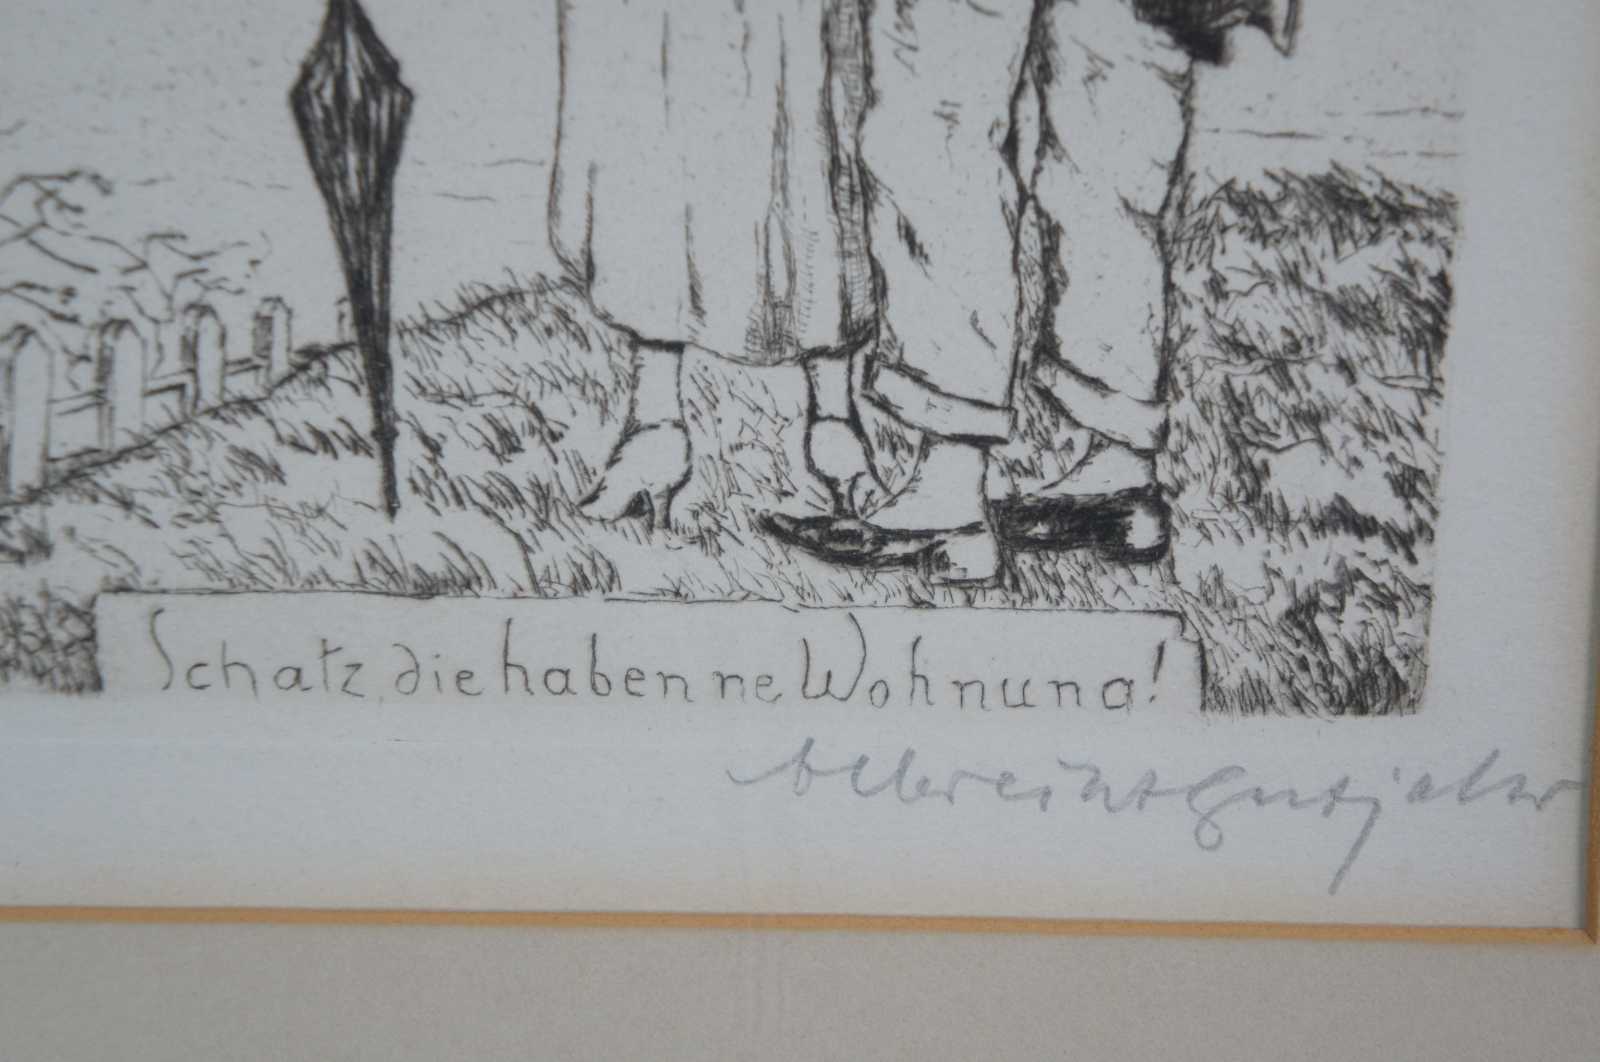 Schatz, die haben ne Wohnung!
Albrecht Gutjahr